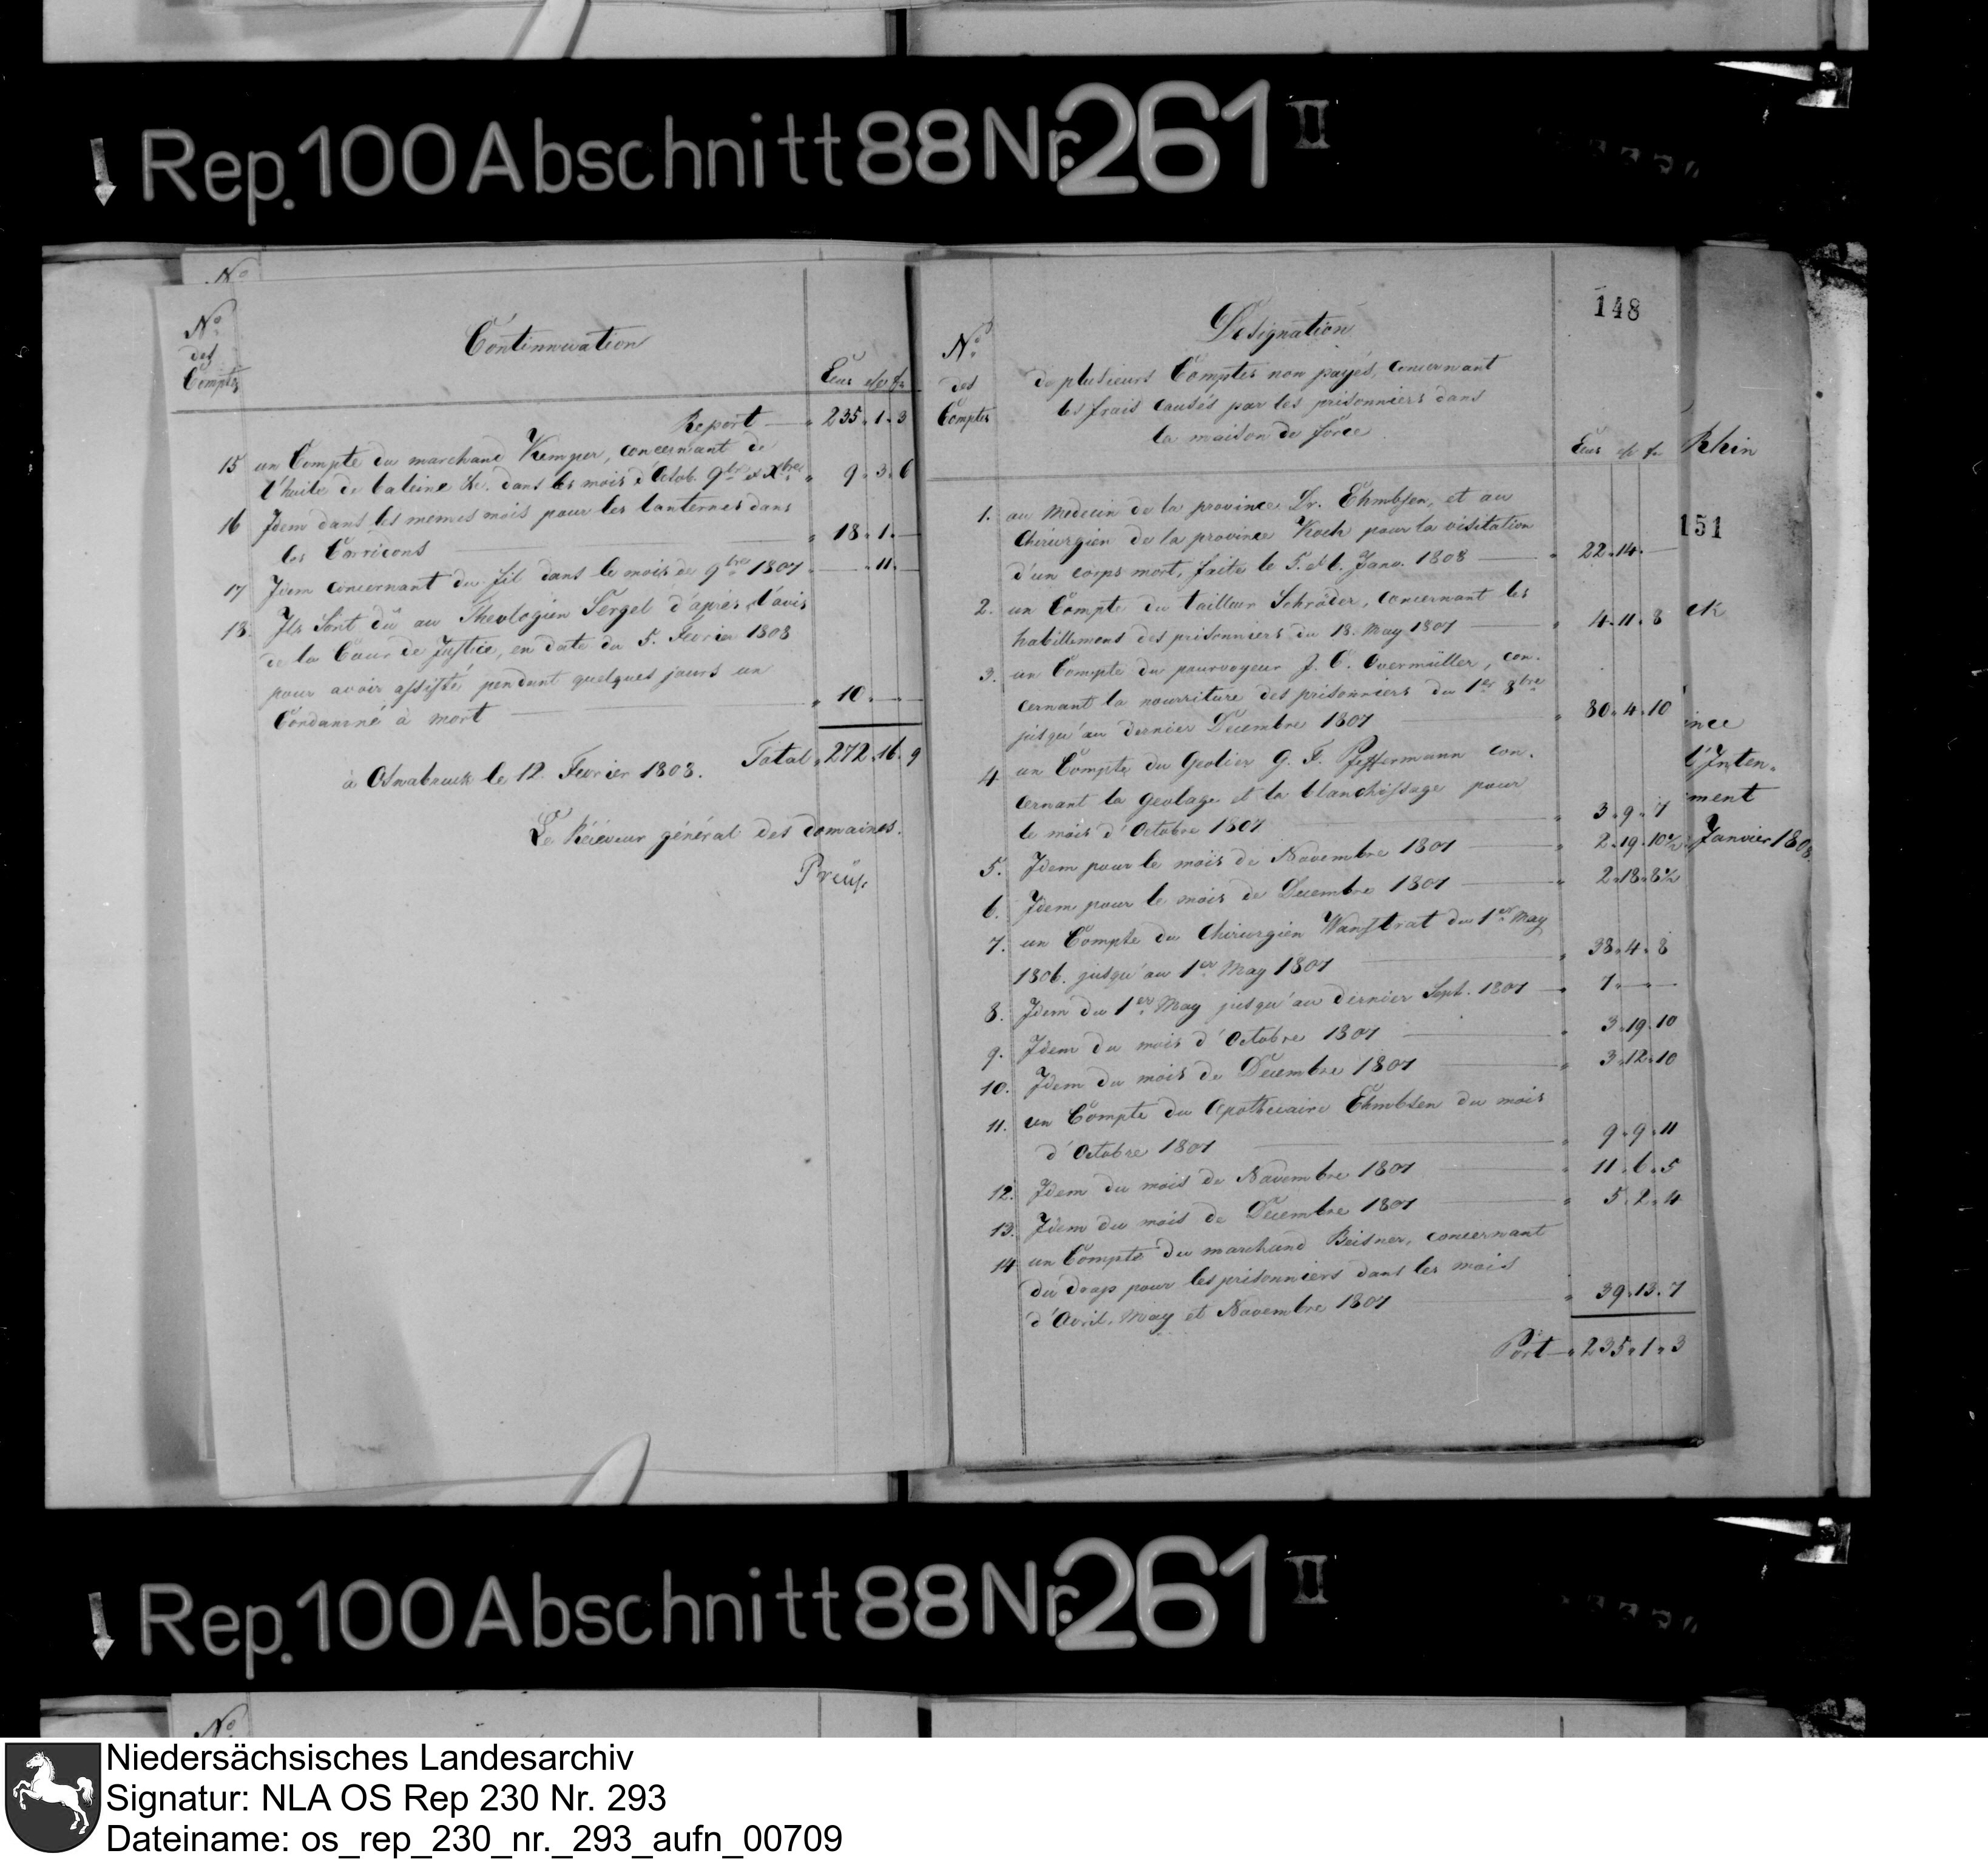 Rep. 100 Abschnitt 88 Nr. 261 II
No
No
des
Comptes
Continuation
Ecus
Report — 235. 1. 3
15 un Compte du marchand Kemper, concernant de
l'huile de baleine &c. dans les mois d'Octob. 9bre et Xbre 9. 3. 6
16 Idem dans les memes mois pour les lanternes dans
les Corridons — 18. 1. —
17 Idem concernant du fil dans le mois de 9bre 1807 — — 11. —
18. Ils sont dû au Theologien Sergel d'après l'avis
de la Cour de Justice, en date du 5. Fevrier 1808
pour avoir assisté pendant quelques jours un
Condamné à mort — 10. — —
Total 272. 16. 9
à Osnabruck le 12. Fevrier 1808.
Le Réceveur général des domaines.
Preuß
148
No
des
Comptes
Designation
de plusieurs Comptes non payés, concernant
les frais causés par les prisonniers dans
la maison de force
Ecus
1. au Medecin de la province Dr. Ehmbsen, et au
Chirurgien de la province Koch pour la visitation
d'un corps mort, faite le 5. et 6. Janv. 1808 — 22. 14. —
2. un Compte du tailleur Schröder, concernant les
habillemens des prisonniers du 18. May 1807 — 4. 11. 8
3. un Compte du pourvoyeur J. C. Overmüller, con-
cernant la nourriture des prisonniers du 1er 8bre
jusqu'au dernier Decembre 1807 — 80. 4. 10
4 un Compte du Geolier G. F. Pfeffermann con-
cernant la Geolage et la blanchissage pour
le mois d'Octobre 1807 — 3. 9. 7
5. Idem pour le mois de Novembre 1807 — 2. 19. 10½
6. Idem pour le mois de Decembre 1807 — 2. 18. 8½
7. un Compte du Chirurgien Wanstrat du 1er May
1806. jusqu'au 1er May 1807 — 38. 4. 8
8. Idem du 1er May jusqu'au dernier Sept. 1807 — 7. — —
9. Idem du mois d'Octobre 1807 — 3. 19. 10
10. Idem du mois de Decembre 1807 — 3. 12. 10
11. un Compte du Apothecaire Ehmbsen du mois
d'Octobre 1807 — 9. 9. 11
12. Idem du mois de Novembre 1807 — 11. 6. 5
13. Idem du mois de Decembre 1807 — 5. 2. 4
14 un Compte du marchand Reisner, concernant
du drap pour les prisonniers dans les mois
d'Avril, May et Novembre 1807 — 39. 13. 7
Port — 235. 1. 3
Rhin
151
ck
ince
l'Inten-
ment
Janvier 1808.
Rep. 100 Abschnitt 88 Nr. 261 II
No
Niedersächsisches Landesarchiv
Signatur: NLA OS Rep 230 Nr. 293
Dateiname: os_rep_230_nr._293_aufn_00709